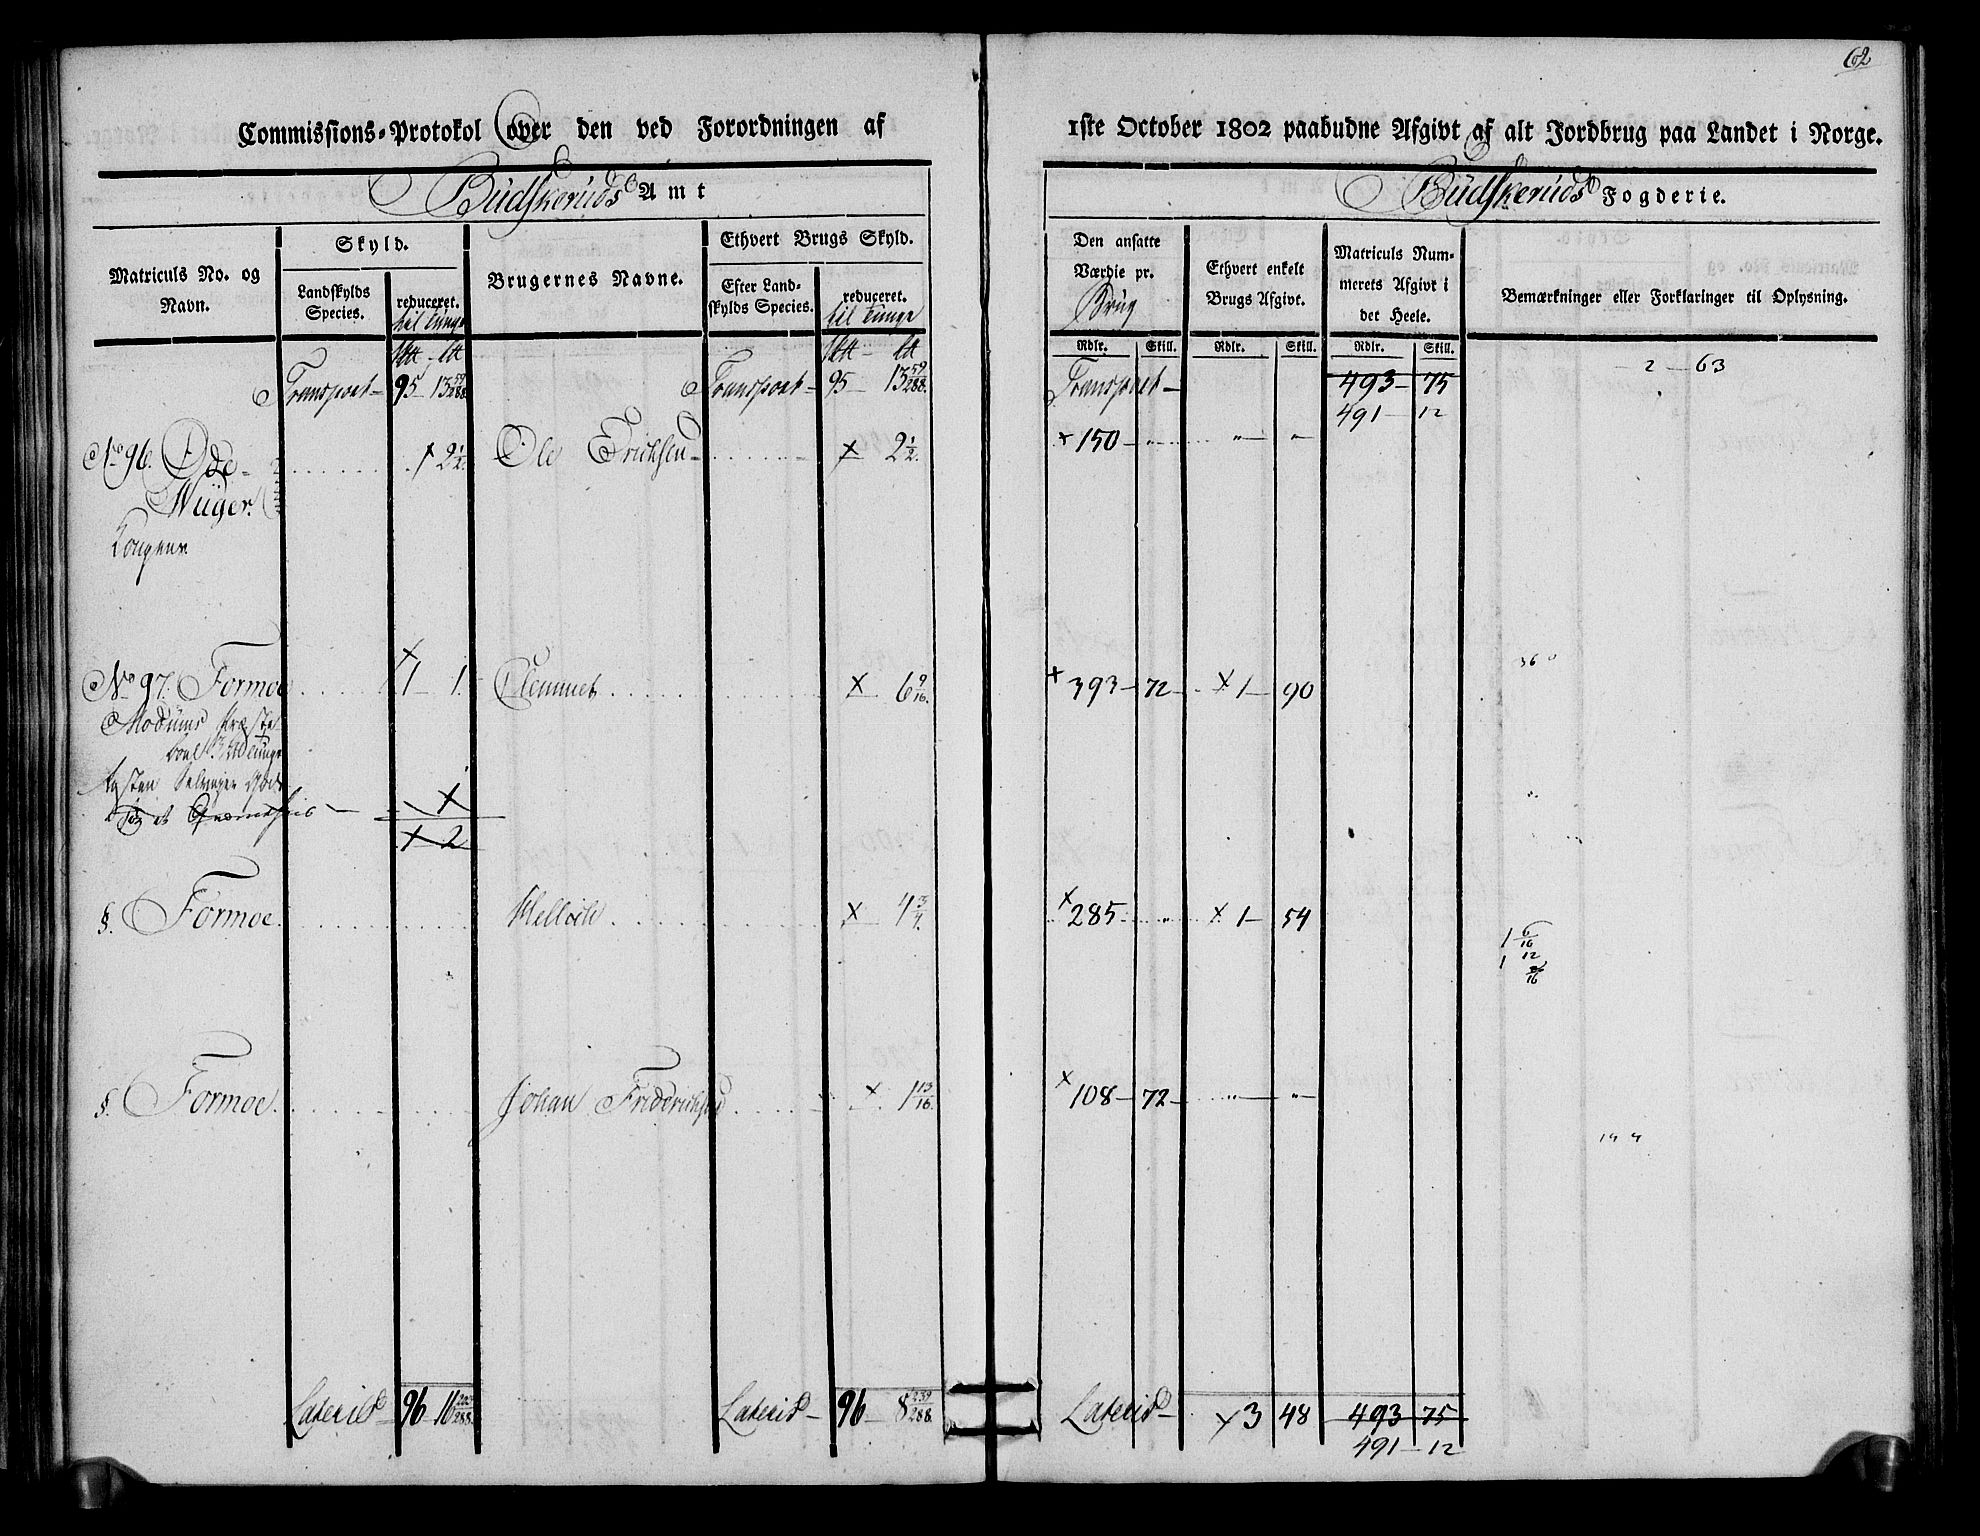 62
Commissions-Protokol over den ved Forordningen af 1ste October 1802 paabudne Afgivt af alt Jordbrug paa Landet i Norge.
Büdskerüds Amt
Büdskerüds Fogderie.
Matriculs No. og Navn.
Skyld.
Landskylds Species.
reduceret. til Tunge
Brugernes Navne.
Ethvert Brugs Skyld.
Efter Landskylds Species.
reduceret. til Tunge
Den ansatte Værdie pr. Brüg
Ethvert enkelt Brugs Afgivt.
Matriculs Nummerets Afgivt i det Heele.
Bemærkninger eller Forklaringer til Oplysning.
Rdlr. Skill. Rdlr. Skill. Rdlr. Skill.
Transport 95 13 59/288. Transport 95 13 59/288. Transport 493 75
2 63
491 12
No 96. Øde- 2 1/2. Ole Erichsen 2 1/2. 150 " " "
Wüger.
Kongens
No 97. Formoe 1 1. Clemmet 6 9/16. 393 72 1 90
360
Modums Præste-
2
§. Formoe 4 3/4. 285 " 1 54
1 6/16
1 12/16
§. Formoe. Johan Friderichsen 1 13/16. 108 72 " "
Lateris 96 16 /288. Lateris 96 8 239/288. Lateris 3 48 493 75
491 12